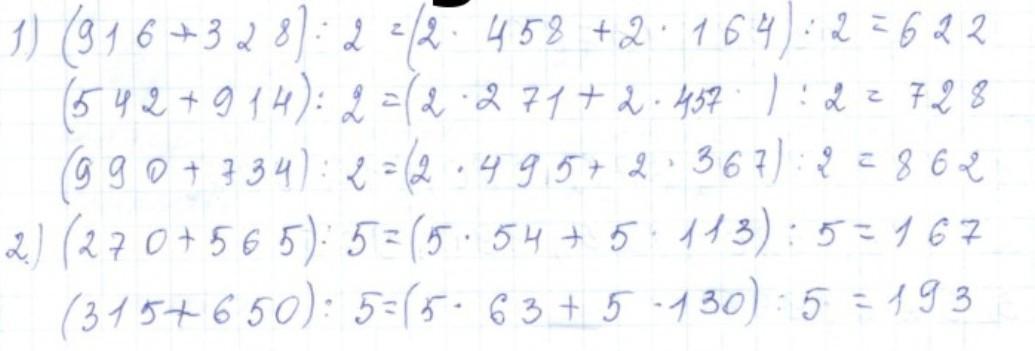 1) (916+328): 2 =(2· 458 +2· 164): 2 = 622
(542+914): 2 =(2 ·271+ 2·457 ) : 2 = 728
(990+734): 2 =(2 ·495+ 2· 367): 2 = 862
2.) (270+565): 5=(5· 54 + 5· 113) : 5 = 167
(315+650): 5=(5· 63 + 5 ·130) : 5 = 193